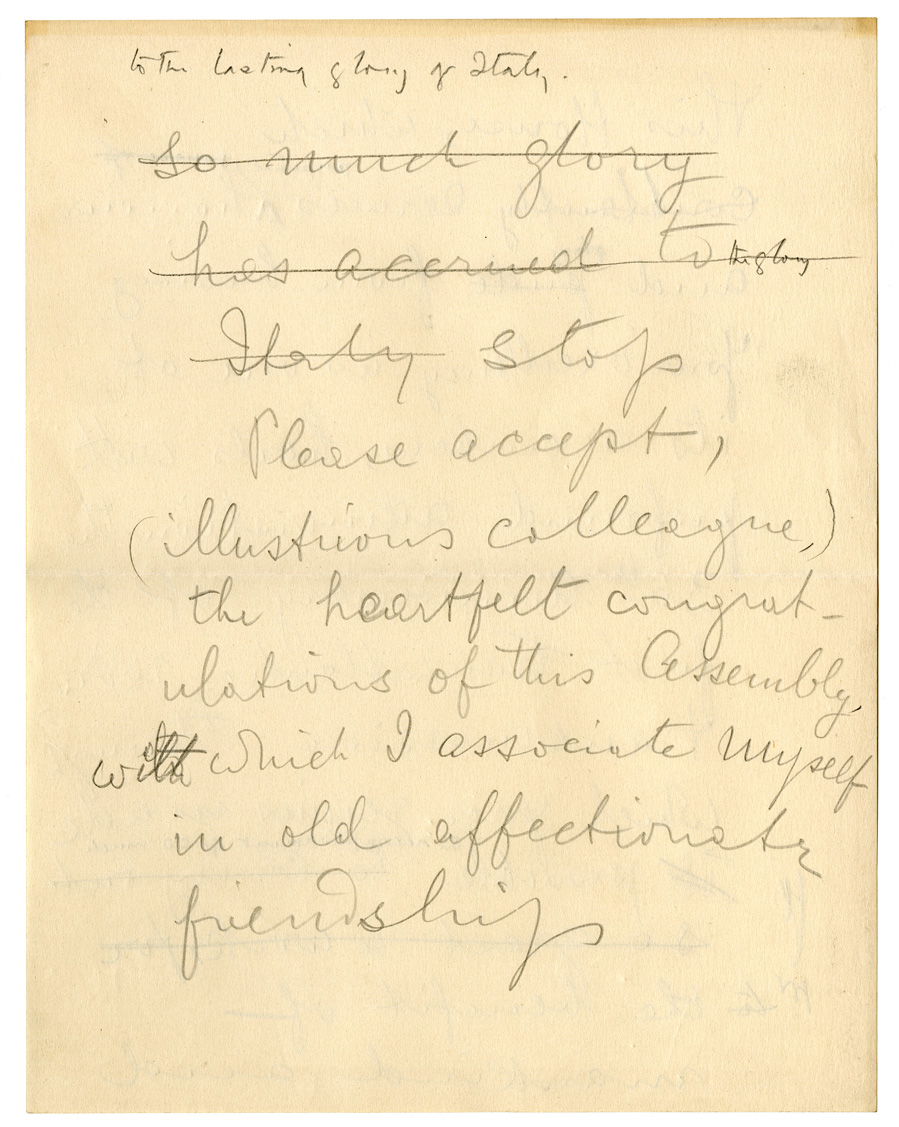 to the lasting glory of Italy.
So much glory
has accrued to the glory
Italy Stop
Please accept,
(illustrious colleague,)
the heartfelt congrat-
ulations of this Assembly,
with which I associate myself
in old affectionate
friendship